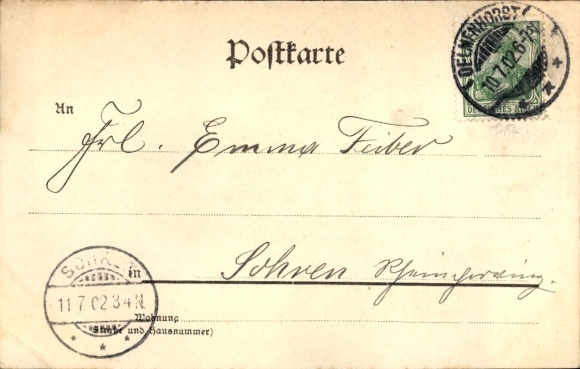 Postkarte
DELMENHORST
10.7.02.6-7N.
DEUTSCHES REICH
An
Frl. Emma Feiber
in Sohren Rheinprovinz.
SOHREN
11.7.02 3-4N.
Wohnung
(Straße und Hausnummer)